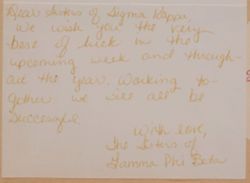 Dear Sisters of Sigma Kappa,
We wish you the very
best of luck in the
upcoming week and through-
out the year. Working to-
gether we will all be
successful.
With love,
The Sisters of
Gamma Phi Beta